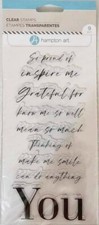 CLEAR STAMPS
ESTAMPES TRANSPARENTES
hampton art
So proud of
inspire me
Grateful for
have me so well
mean so much
Thinking of
make me smile
can do anything
You